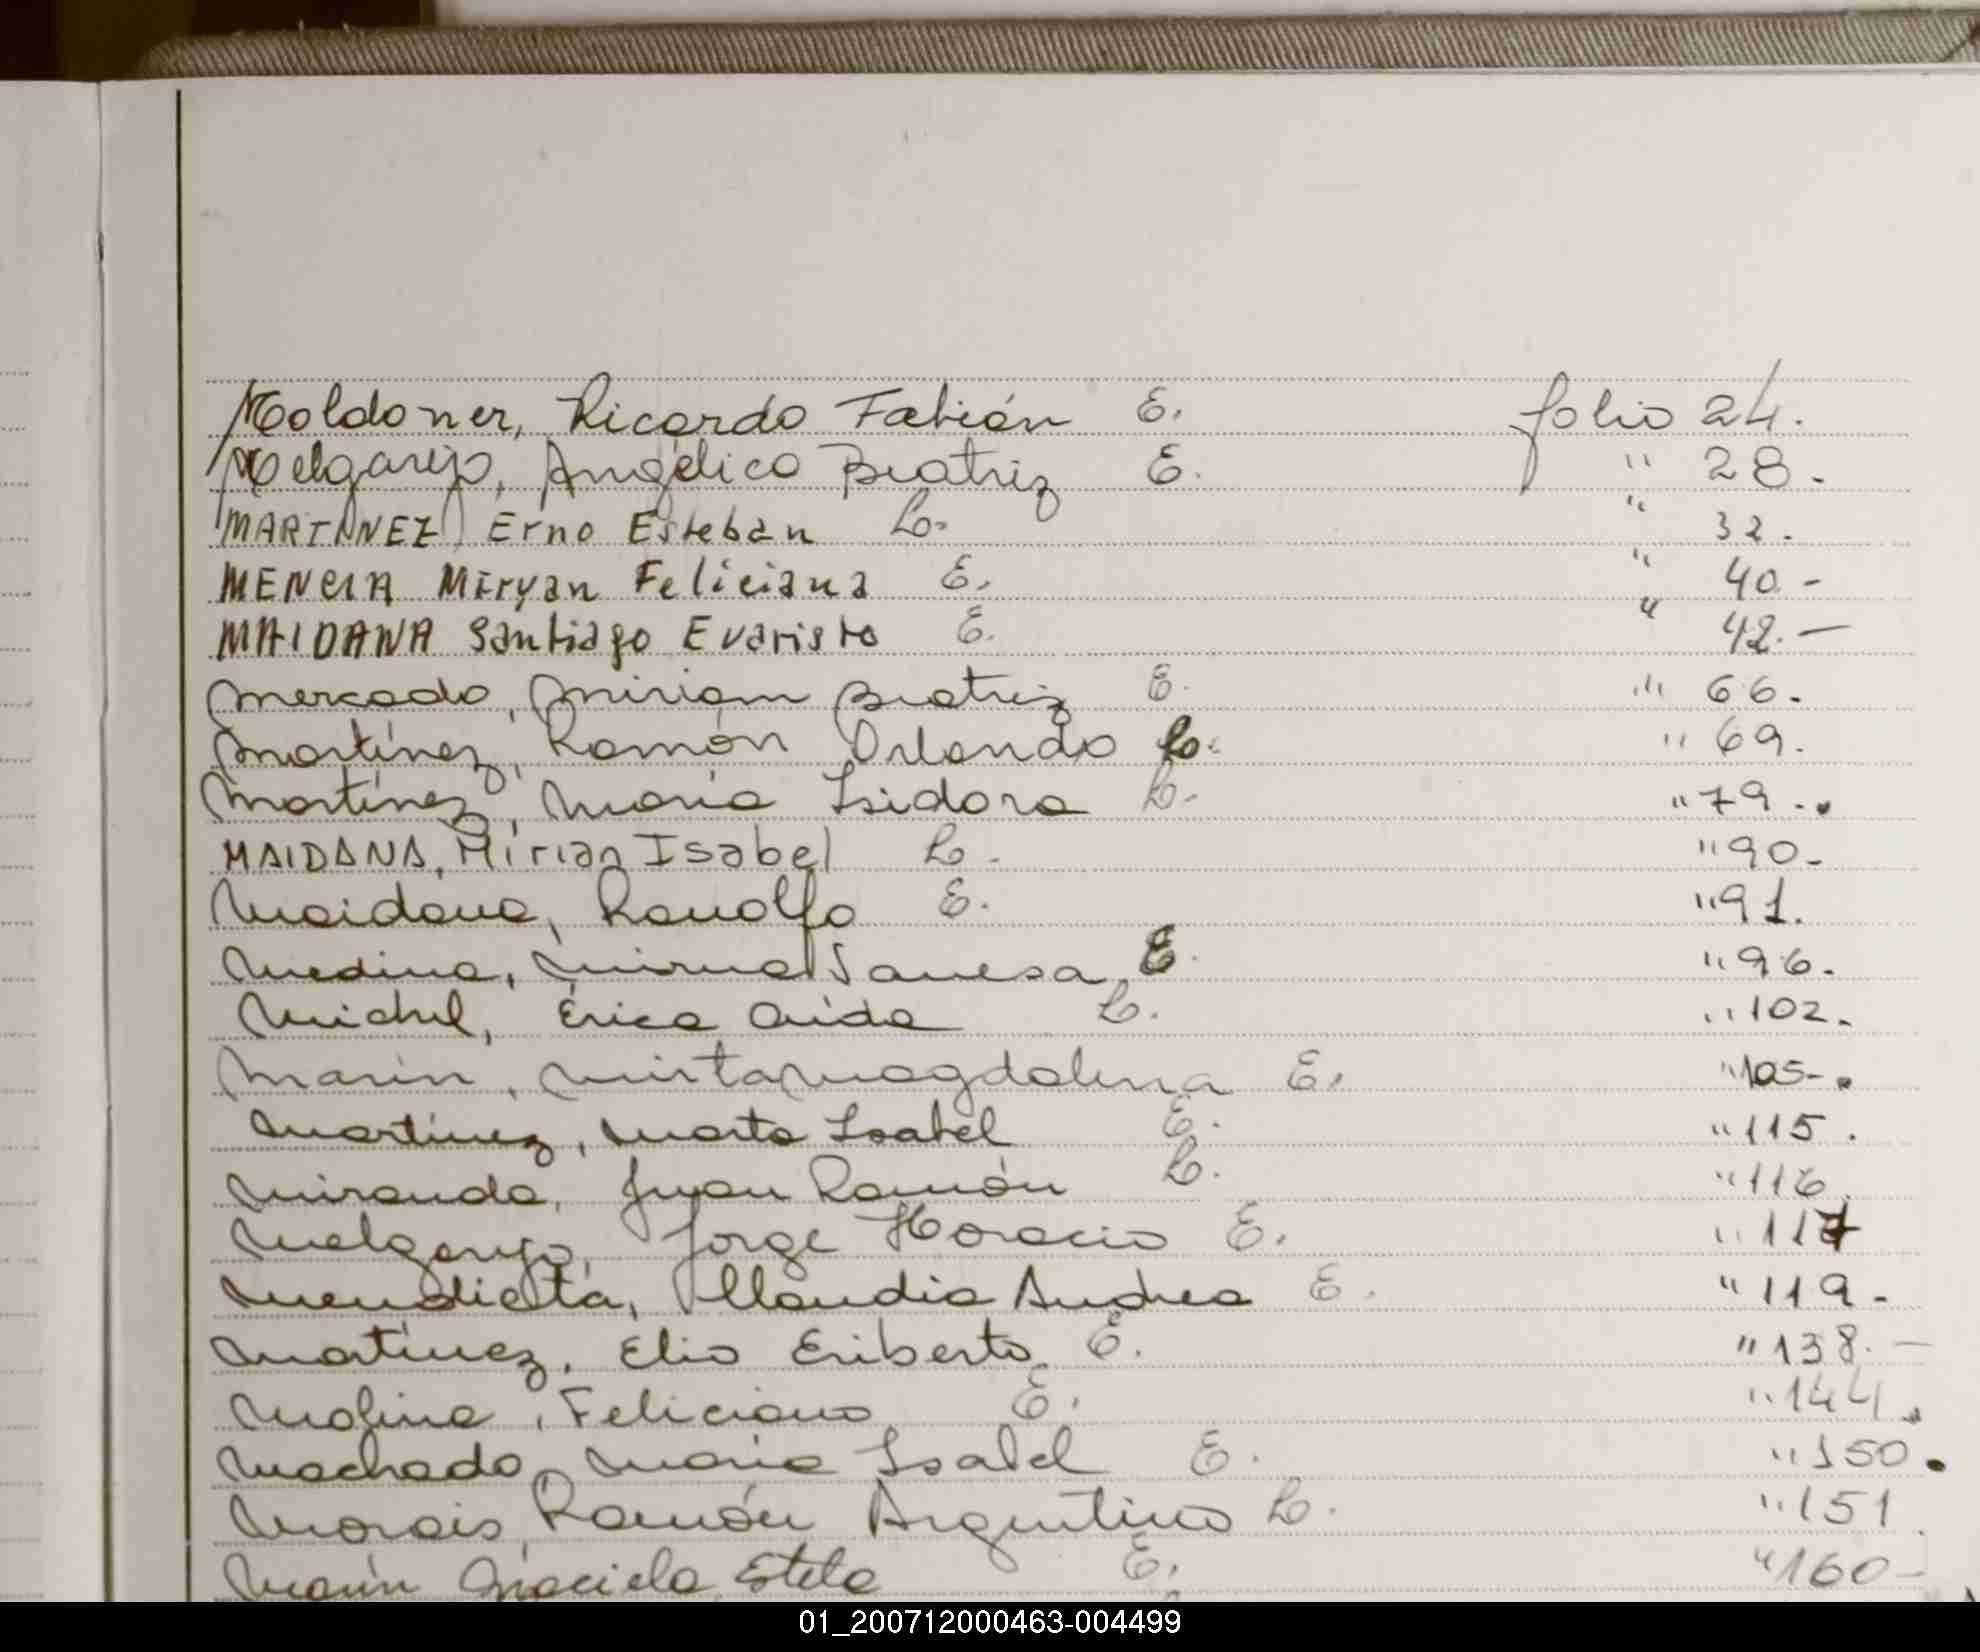 Moldoner, Ricardo Fabián E. folio 24.
Melgarejo, Angélica Beatriz E. " 28.
MARTINEZ Erno Esteban Lo. " 32.
MENCIA Miryan Feliciana E. " 40.-
MAIDANA Santiago Evaristo E. " 42.-
Mercado, Miriam Beatriz E. " 66.
Martínez, Ramón Orlando Lo. " 69.
Martínez, María Isidora Lo. " 79.
MAIDANA, Mirian Isabel Lo. " 90.
Maidana, Ranolfo E. " 91.
Medina, Mirna Vanesa E. " 96.
Michel, Érica Aída Lo. " 102.
Marin, Mirta Magdalena E. " 105.
Martínez, Marta Isabel E. " 115.
Miranda, Juan Ramón Lo. " 116.
Melgarejo, Jorge Horacio E. " 117
Mendieta, Claudia Andrea E. " 119.
Martínez, Elio Eriberto E. " 138.-
Molina, Feliciano E. " 144.
Machado, María Isabel E. " 150.
Morais, Ramón Argentino Lo. " 151.
Marín Graciela Estela E. " 160-
01_200712000463-004499